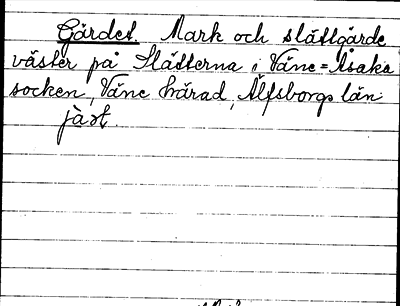 Gärdet. Mark och slåttgärde
väster på Slätterna i Väne=Åsaka
socken, Väne härad, Älfsborgs län.